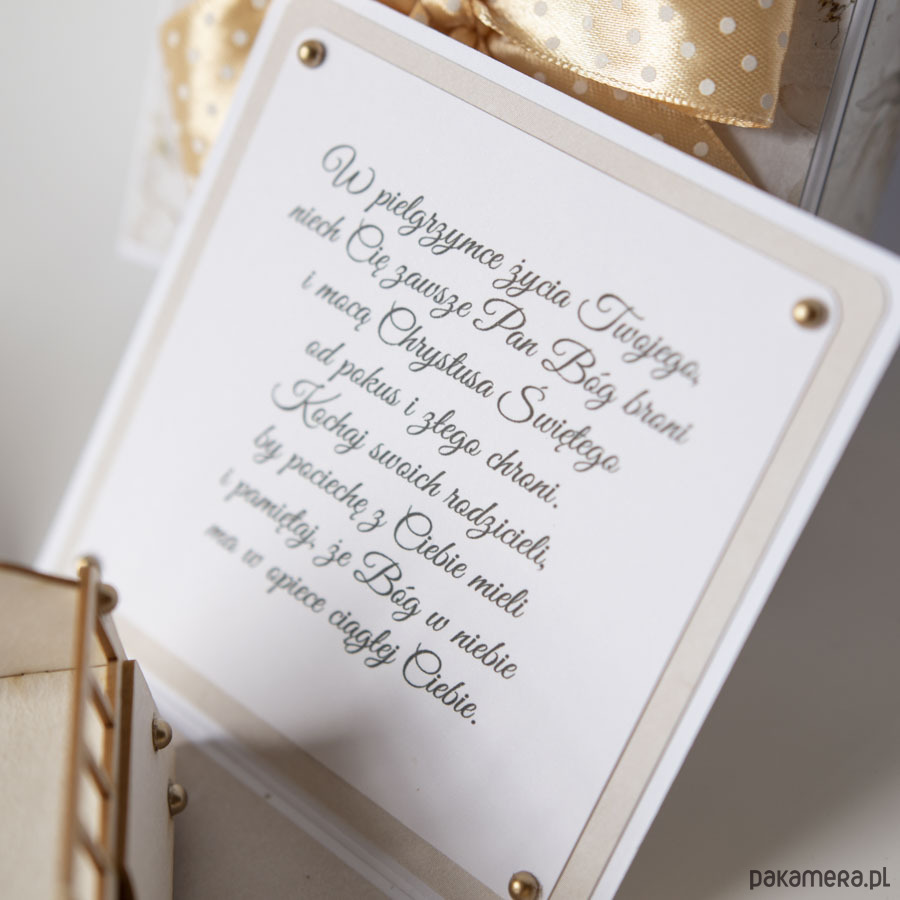 W pielgrzymce życia Twojego,
niech Cię zawsze Pan Bóg broni
i mocą Chrystusa Świętego
od pokus i złego chroni.
Kochaj swoich rodzicieli,
by pociechę z Ciebie mieli
i pamiętaj, że Bóg w niebie
ma w opiece ciągłej Ciebie.
pakamera.pl